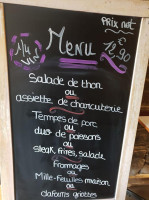 Prix net
Menu
€
12,90
Salade de thon
ou
assiette de charcuterie
Tempes de porc
ou
duo de poissons
ou
steak, frites, salade
Fromages
ou
Mille-Feuilles maison
ou
clafoutis griottes